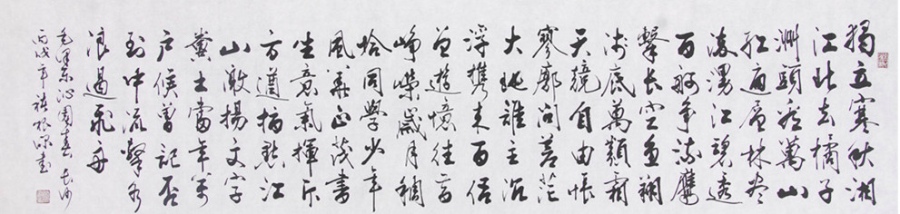 獨立寒秋湘
江北去橘子
洲頭看萬山
紅遍層林盡
染漫江碧透
百舸爭流鷹
擊長空魚翔
淺底萬類霜
天競自由悵
寥廓問蒼茫
大地誰主沉
浮攜來百侶
曾遊憶往昔
崢嶸歲月稠
恰同學少年
風華正茂書
生意氣揮斥
方遒指點江
山激揚文字
糞土當年萬
戶侯曾記否
到中流擊水
浪遏飛舟
毛澤東沁園春長沙
丙戌年 根深書